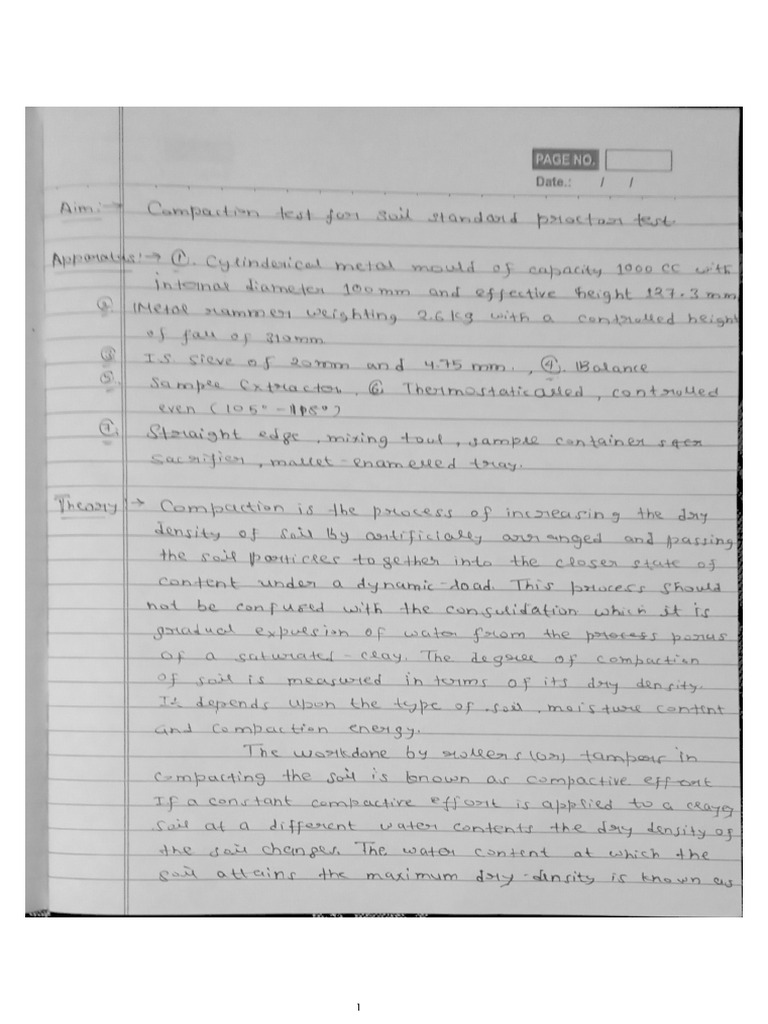 PAGE NO.
Date.: / /
Aim:→ Compaction test for soil standard proctor test.
Apparatus:→ ①. Cylinderical metal mould of capacity 1000 CC with
internal diameter 100mm and effective height 127.3 mm
②. Metal rammer weighting 2.6 kg with a controlled height
of fall of 310mm.
③ I.S sieve of 20mm and 4.75 mm., ④. Balance
⑤. Sample Extractor, ⑥ Thermostaticalled, controlled
even (105° - 115°)
⑦. Straight edge, mixing toul, sample container
sacrifier, mallet-enamelled tray.
Theory:→ Compaction is the process of increasing the dry
density of soil by artificially arranged and passing
the soil particles together into the closer state of
content under a dynamic-load. This process should
not be confused with the consulidation which it is
gradual expulsion of water from the process porus
of a saturated-clay. The degree of compaction
of soil is measured in terms of its dry density.
It depends upon the type of soil, moisture content
and compaction energy.
The workdone by rollers (or) tampers in
compacting the soil is known as compactive effort
If a constant compactive effort is applied to a clayey
soil at a different water contents the dry density of
the soil changes. The water content at which the
soil attains the maximum dry-density is known as
1